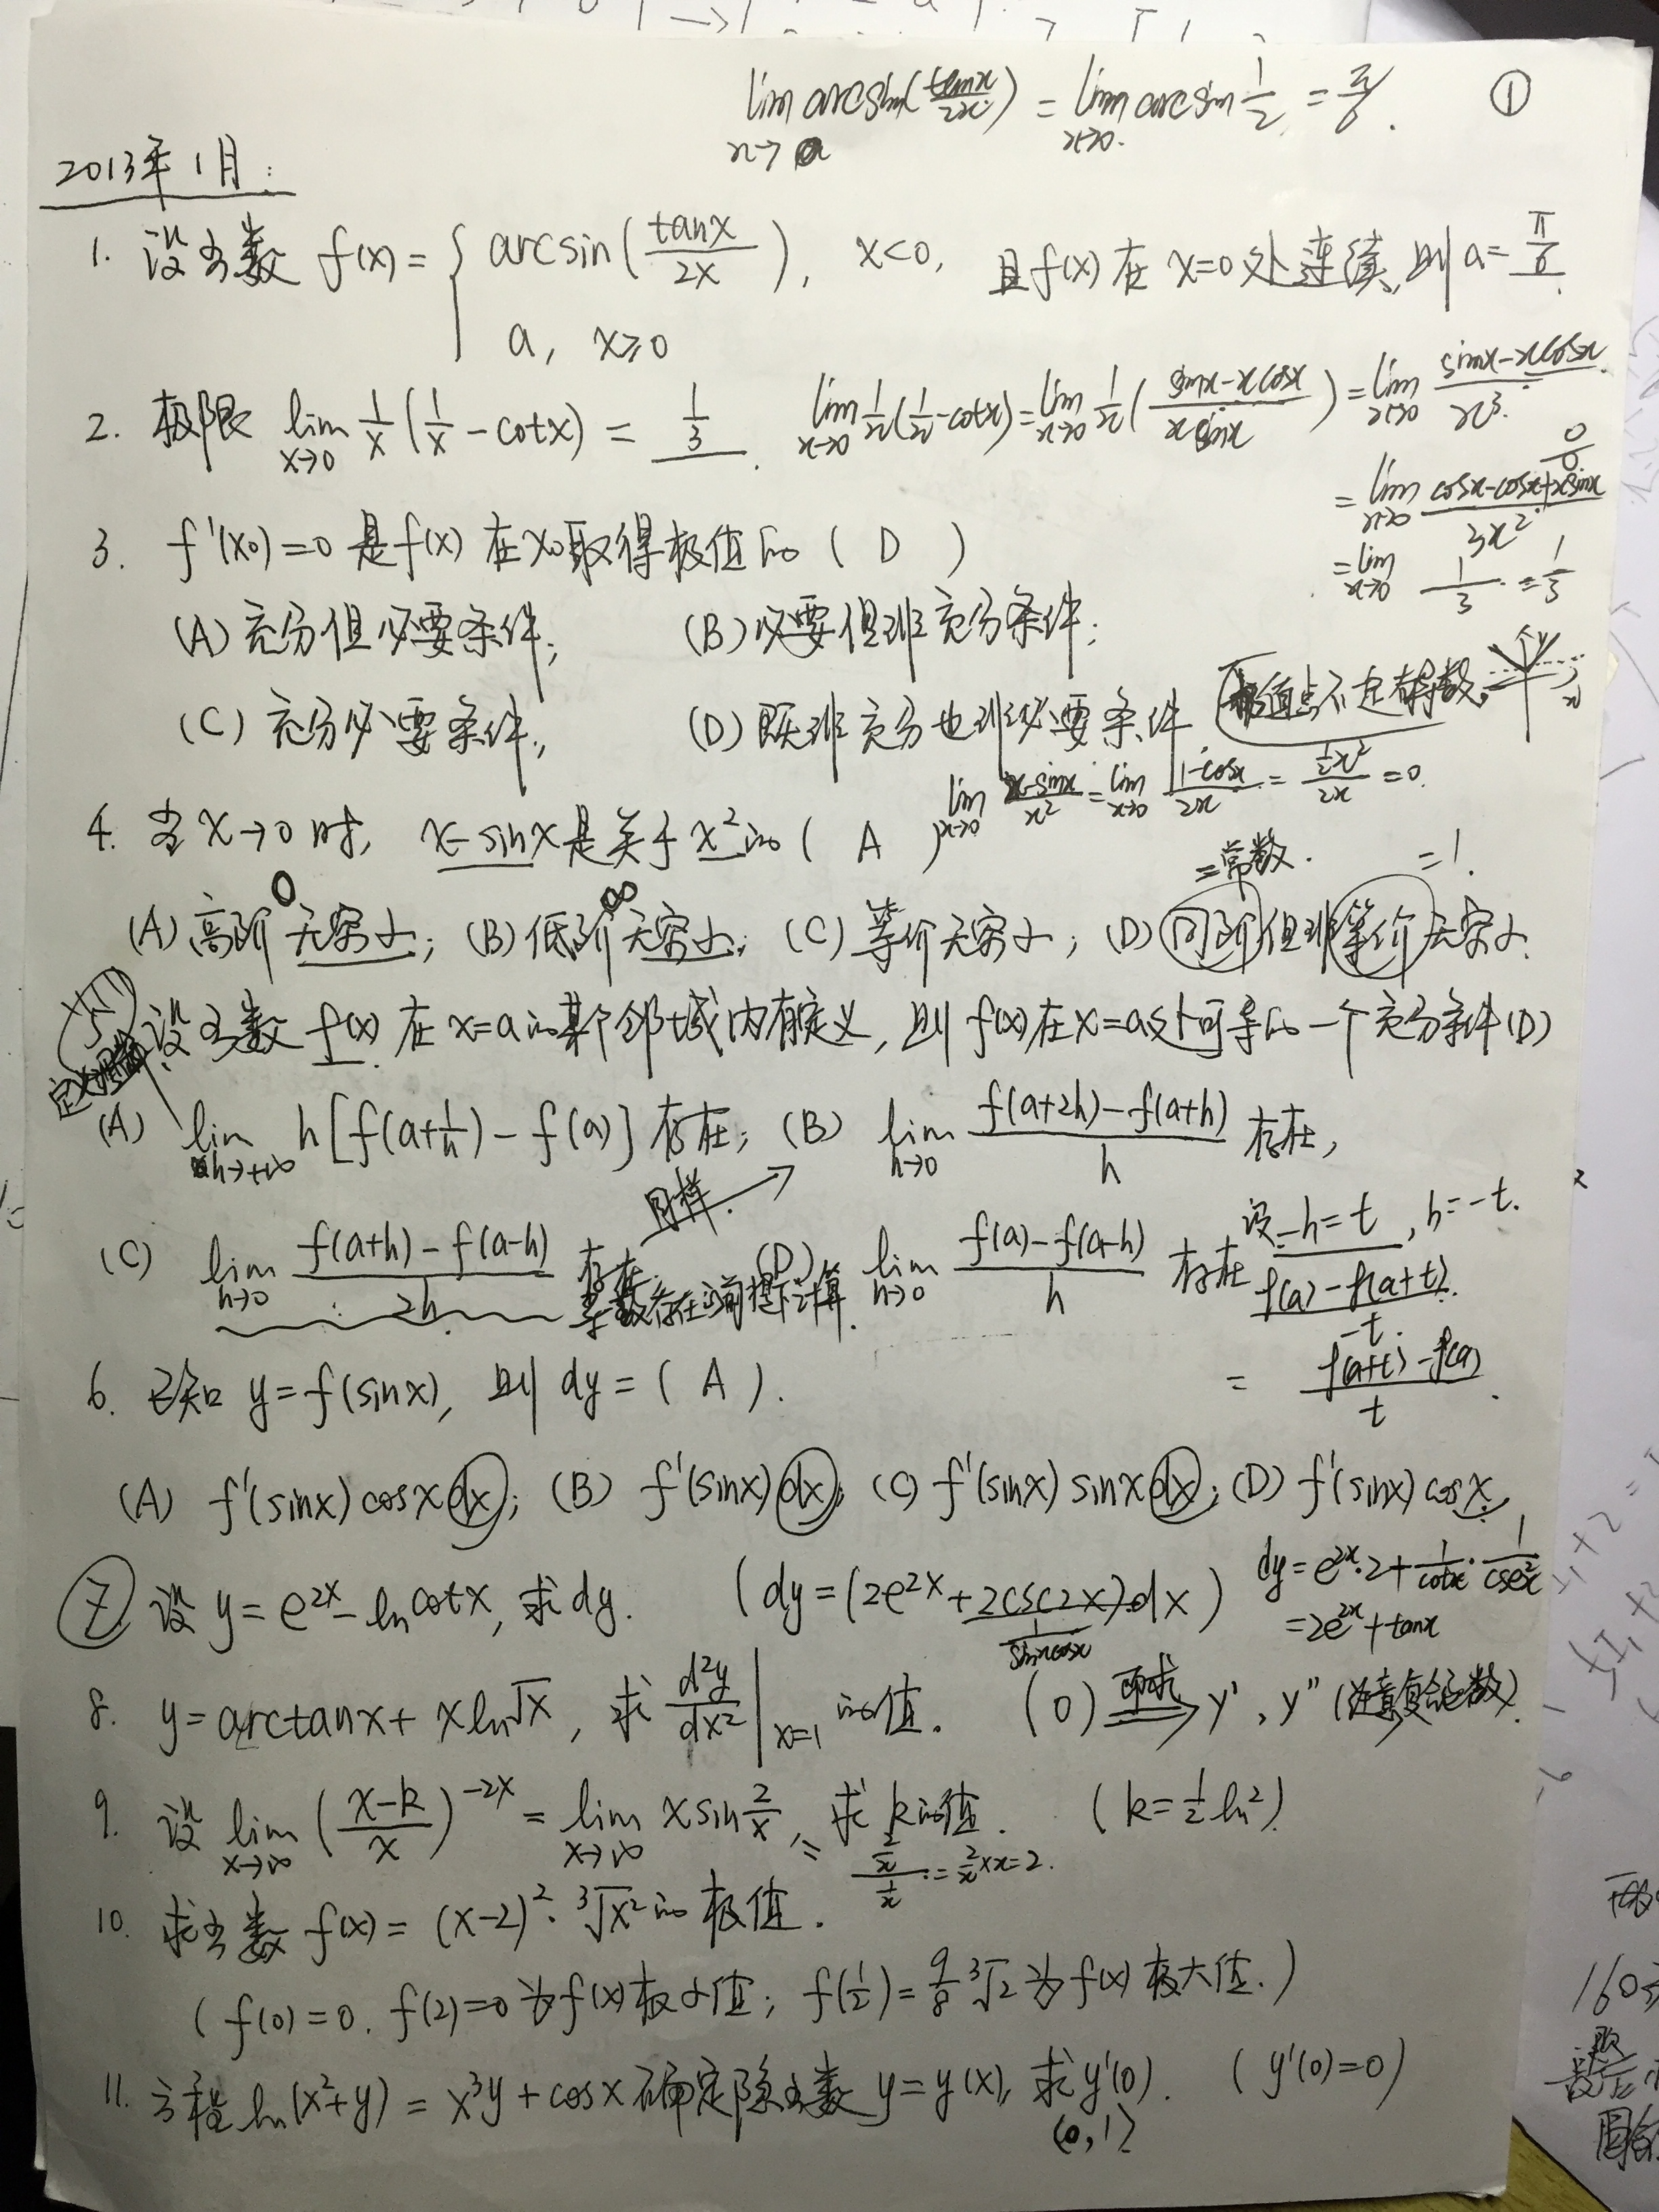 lim_{x→0} arcsin(tanx/2x) = lim_{x→0} arcsin 1/2 = π/6. ①
2013年1月:
1. 设函数 f(x) = { arcsin(tanx/2x), x<0, 且f(x)在 x=0处连续,则a= π/6.
a, x≥0
2. 极限 lim_{x→0} 1/x (1/x - cotx) = 1/3.
lim_{x→0} 1/x(1/x - cotx) = lim_{x→0} 1/x (sinx-xcosx / xsinx) = lim_{x→0} sinx-xcosx / x³.
0/0
= lim_{x→0} cosx-cosx+xsinx / 3x²
= lim_{x→0} 1/3 = 1/3
3. f'(x₀)=0 是f(x)在x₀取得极值的 ( D )
(A) 充分但必要条件; (B) 必要但非充分条件;
(C) 充分必要条件; (D) 既非充分也非必要条件.
极值点不一定有导数 y x
4. 当 x→0 时, x-sinx是关于x²的 ( A )
lim_{x→0} x-sinx / x² = lim_{x→0} 1-cosx / 2x = ½x² / 2x = 0.
=常数. =1.
0 ∞
(A) 高阶无穷小; (B) 低阶无穷小; (C) 等价无穷小; (D) 同阶但非等价无穷小.
5. 设函数 f(x) 在 x=a的某个邻域内有定义, 则 f(x)在x=a处可导的一个充分条件(D)
(A) lim_{h→+∞} h[f(a+1/h) - f(a)] 存在; (B) lim_{h→0} f(a+2h)-f(a+h) / h 存在,
同样→
(C) lim_{h→0} f(a+h)-f(a-h) / 2h 存在 (D) lim_{h→0} f(a)-f(a-h) / h 存在
导数存在的前提下计算.
设-h=t, h=-t.
f(a)-f(a+t) / -t.
= f(a+t)-f(a) / t.
6. 已知 y=f(sinx), 则 dy = ( A ).
(A) f'(sinx)cosxdx; (B) f'(sinx)dx; (C) f'(sinx)sinxdx; (D) f'(sinx)cosx.
7 设 y=e^{2x}-lncotx, 求dy. (dy=(2e^{2x}+2csc2x)dx)
1/sinxcosx
dy=e^{2x}·2+1/cotx·1/csc²x
=2e^{2x}+tanx
8. y=arctanx+xln√x, 求 d²y/dx² |_{x=1} 的值. (0) 即求⇒ y', y'' (注意复合函数).
9. 设 lim_{x→∞} (x-k / x)^{-2x} = lim_{x→∞} xsin 2/x, 求k的值. (k=½ln2).
= 2/x / 1/x = 2/x×x=2.
10. 求函数 f(x) = (x-2)²·³√x² 的极值.
(f(0)=0. f(2)=0为f(x)极小值; f(½)=9/8 ³√2 为f(x)极大值.)
11. 方程 ln(x²+y) = x³y+cosx 确定隐函数 y=y(x), 求y'(0). (y'(0)=0)
(0,1)